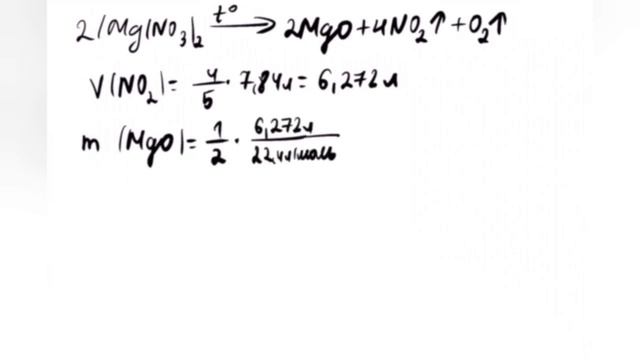 2Mg(NO₃)₂ t° → 2MgO + 4NO₂↑ + O₂↑
V(NO₂) = 4/5 · 7,84л = 6,272л
m (MgO) = 1/2 · 6,272л / 22,4л/моль